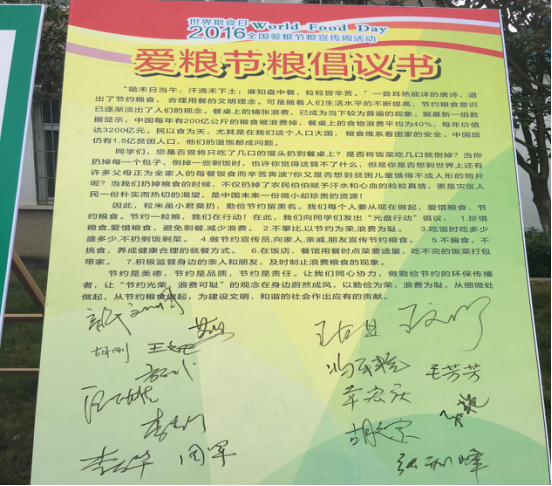 世界粮食日 World Food Day
2016全国爱粮节粮宣传周活动
爱粮节粮倡议书
“锄禾日当午，汗滴禾下土；谁知盘中餐，粒粒皆辛苦。”一首耳熟能详的唐诗，道
出了节约粮食，合理用餐的文明理念。可是随着人们生活水平的不断提高，节约粮食意识
已逐渐淡出了人们的观念。餐桌上的铺张浪费，已成为当下较为普遍的现象。据最新一组数
据显示，中国每年有200亿公斤的粮食被浪费掉，餐桌上的食物浪费平均为40%，每年价值
达3200亿元。民以食为天，尤其是在我们这个人口大国，粮食维系着国家的安全。中国现
仍有1.5亿贫困人口，他们的温饱都成问题。
同学们，您是否曾将只吃了几口的馒头扔到餐桌上？是否将饭菜吃几口就倒掉？当你
扔掉每一个包子，倒掉一些剩饭时，也许你觉得这算不了什么，但是你是否想到世界上还有
许多父母正为全家人的每餐饭食而辛苦奔波？你又是否想到贫困儿童饿得不成人形的照片
呢？当我们扔掉粮食的时候，不仅扔掉了农民伯伯赋予汗水和心血的粒粒真情，更是灾区人
民一份朴实而热切的渴望，是中国未来一份微小却珍贵的资源！
因此，粒米虽小君莫扔，勤俭节约留美名。我们每个人要从现在做起，爱惜粮食、节
约粮食。节约一粒粮，我们在行动！在此，我们向同学们发出“光盘行动”倡议：1.珍惜
粮食,爱惜粮食，避免剩餐,减少浪费。2.不攀比,以节约为荣,浪费为耻。3.吃饭时吃多少
盛多少,不扔剩饭剩菜。4.做节约宣传员,向家人,亲戚,朋友宣传节约粮食。5.不偏食，不
挑食，养成健康合理的就餐方式。6.在饭店、餐馆用餐时点菜要适量，吃不完的饭菜打包
带家。7.积极监督身边的亲人和朋友，及时制止浪费粮食的现象。
节约是美德，节约是品质，节约是责任。让我们同心协力，做勤俭节约的环保传播
者，让“节约光荣，浪费可耻”的观念在身边蔚然成风，以勤俭为荣，浪费为耻，从细微处
做起，从节约粮食做起，为建设文明、和谐的社会作出应有的贡献。
胡刚
毛芳芳
周军